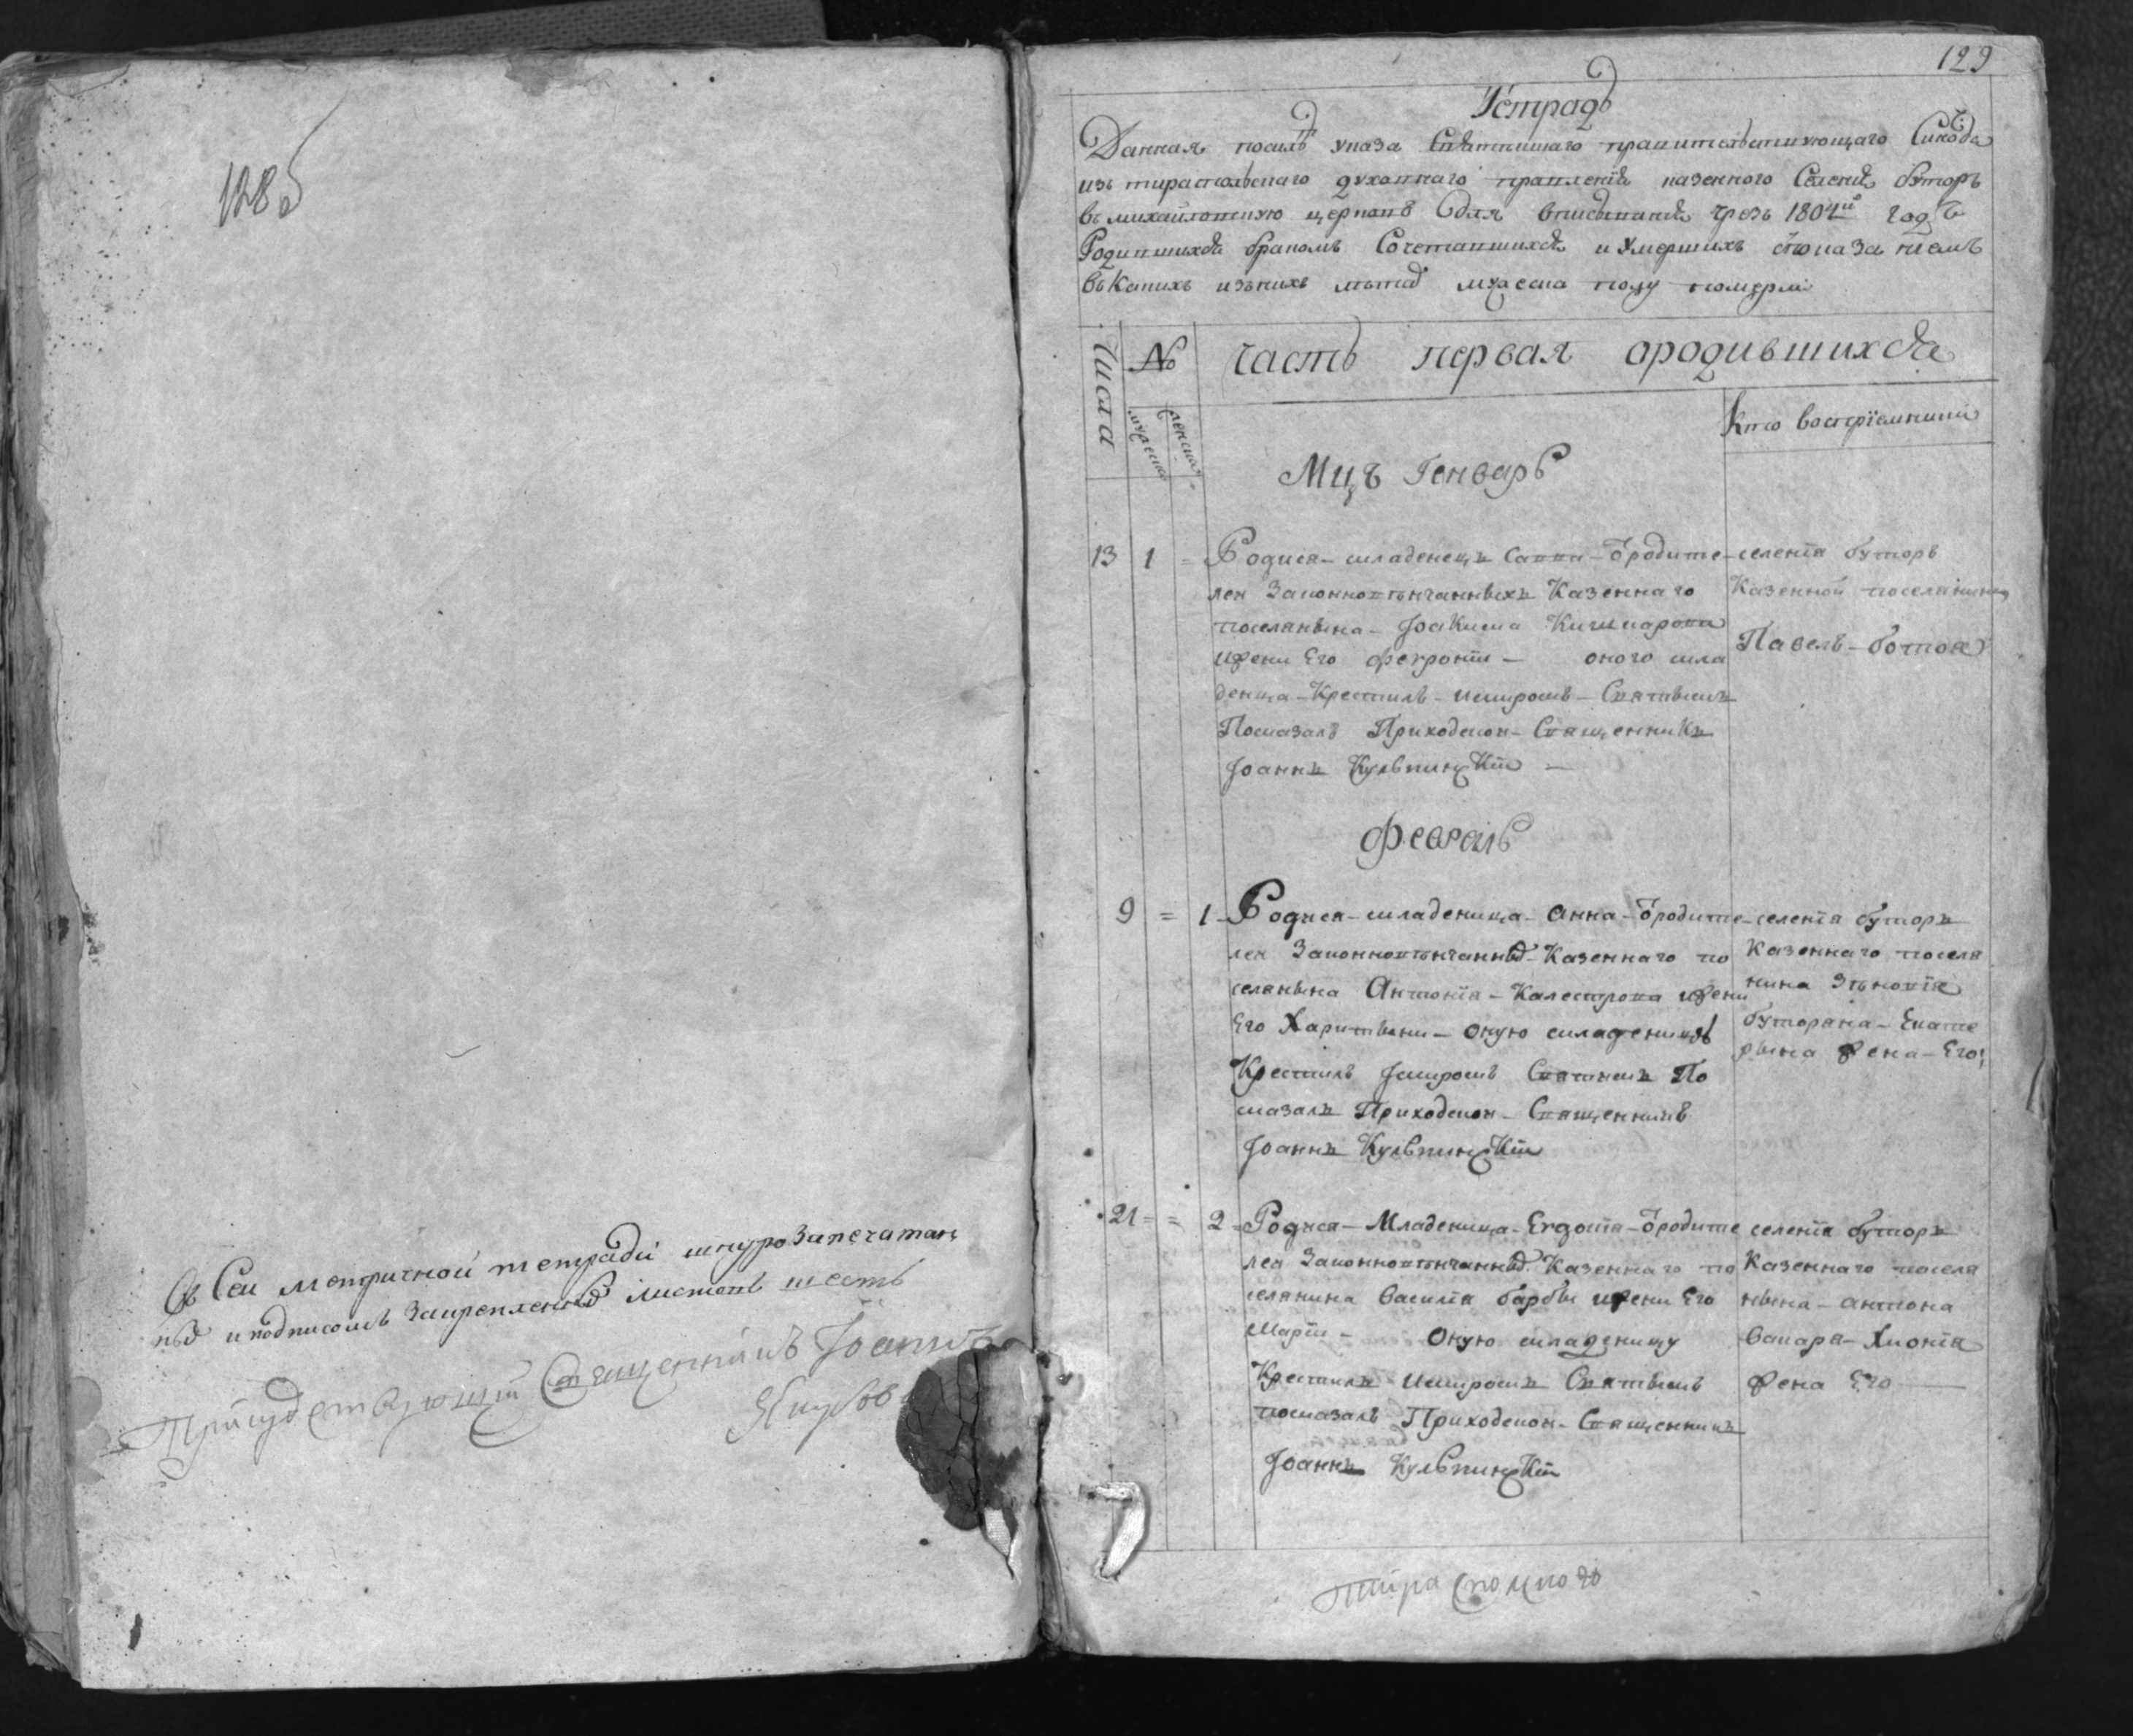 128б
Въ Сеи метричной тетради шнурозапечатан
ныхъ и подписомъ Закрепленныхъ листовъ шесть
Присудствующій Священникъ Іоаннъ
129
Тетрадь
Данная посилѣ указа Святѣйшаго правителствующаго Сѵнода
изъ тираспольскаго духовнаго правленія казенного Селенія буторъ
въ михайловскую церковь для вписыванія чрезъ 1804й годъ
Родившихся бракомъ Сочетавшихся и Умершихъ
въ Какихъ изънихъ лѣтахъ померли
Числа
№
часть первая ородившихся
мужеска
женска
Кто воспріемники
Мцъ Генварь
13 1 = Родися младенецъ Савва ѿродите
лей Законновѣнчанныхъ Казеннаго
поселянина Іоакима
ижени Его Февроніи оного мла
денца Крестилъ имиромъ Святымъ
Помазалъ Приходской Священникъ
Іоаннъ Кульчинскій
селенія буторъ
Казенной поселянинъ
Павелъ
Февраль
9 = 1 Родися младеница Анна ѿродите
лей Законновѣнчанныхъ Казеннаго по
селянина Антонія Калестрова ижени
Его Харитины оную младеницу
Крестилъ Імиромъ Святымъ По
мазалъ Приходской Священникъ
Іоаннъ Кульчинскій
селенія буторъ
Казеннаго поселя
нина Зѣновія
буторяна Екате
рына жена Его
21 = = 2 Родися Младеница Евдокія ѿродите
лей Законновѣнчанныхъ Казеннаго по
селянина Василія барбы ижени Его
Маріи Оную младеницу
Крестилъ имиромъ Святымъ
помазалъ Приходской Священникъ
Іоаннъ Кульчинскій
селенія буторъ
Казеннаго поселя
нына антона
Вакаря Хионія
жена Его